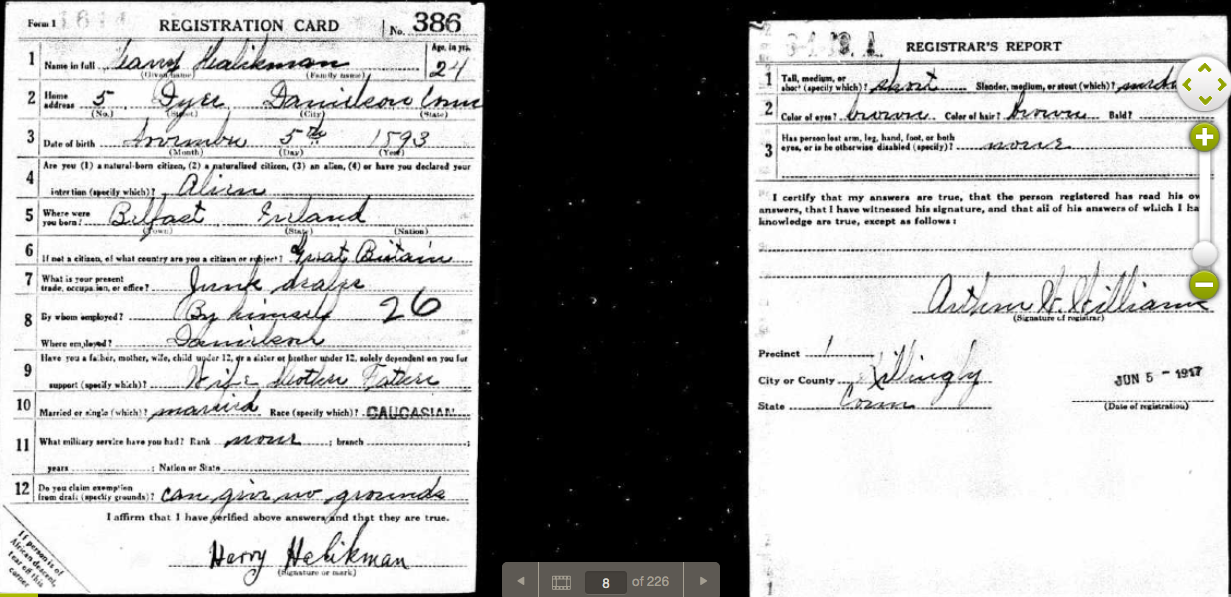 Form 1
REGISTRATION CARD
No. 386
1 Name in full Harry Halikman
Age, in yrs. 24
(Given name) (Family name)
2 Home address 5 Dyer Danielson Conn
(No.) (Street) (City) (State)
3 Date of birth November 5th 1893
(Month) (Day) (Year)
4 Are you (1) a natural-born citizen, (2) a naturalized citizen, (3) an alien, (4) or have you declared your
intention (specify which)? Alien
5 Where were you born? Belfast Ireland
(Town) (State) (Nation)
6 If not a citizen, of what country are you a citizen or subject? Great Britain
7 What is your present trade, occupation, or office? Junk dealer
8 By whom employed? By himself 26
Where employed? Danielson
9 Have you a father, mother, wife, child under 12, or a sister or brother under 12, solely dependent on you for
support (specify which)? Wife Mother Father
10 Married or single (which)? married Race (specify which)? CAUCASIAN
11 What military service have you had? Rank none ; branch ;
years ; Nation or State
12 Do you claim exemption from draft (specify grounds)? can give no grounds
I affirm that I have verified above answers and that they are true.
Harry Halikman
(Signature or mark)
If person is of
African descent,
tear off this
corner
REGISTRAR'S REPORT
1 Tall, medium, or short (specify which)? short Slender, medium, or stout (which)?
2 Color of eyes? brown Color of hair? brown Bald?
3 Has person lost arm, leg, hand, foot, or both
eyes, or is he otherwise disabled (specify)? none
I certify that my answers are true, that the person registered has read his ow
answers, that I have witnessed his signature, and that all of his answers of which I ha
knowledge are true, except as follows:
Arthur G. Williams
(Signature of registrar)
Precinct 1
City or County Killingly
State Conn
JUN 5 - 1917
(Date of registration)
8 of 226